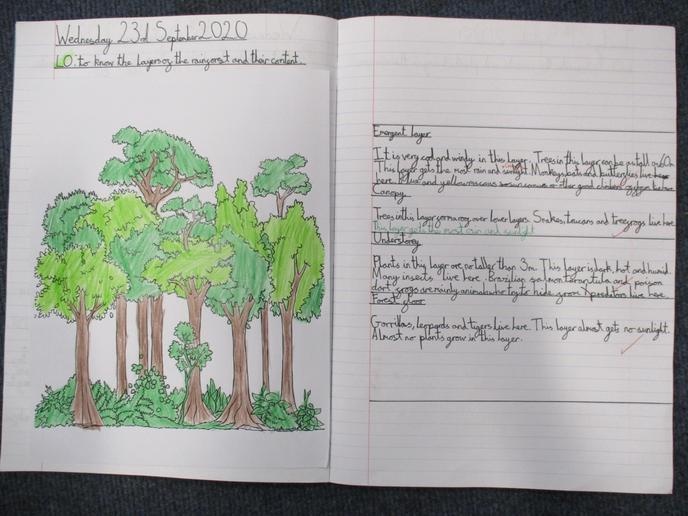 Wednesday 23rd September 2020
LO: to know the layers of the rainforst and their content.
Emergent layer
It is very cool and windy in this layer. Trees in this layer can be as tall as 60m
This layer gets the most rain and sunlight. Monkeys, bats and butterflies live
here. Blue and yellow macaws
Canopy
Trees in this layer form a roof over lower layers. Snakes, toucans and treefrogs live here.
This layer gets the most rain and sunlight
Understorey
Plants in this layer are no taller than 3m. This layer is dark, hot and humid.
Many insects live here. Brazilian salmon tarantula and poison
dart frogs are mainly animals who try to hide from predators live here
Forest floor
Gorrillas, leopards and tigers live here. This layer almost gets no sunlight.
Almost no plants grow in this layer.